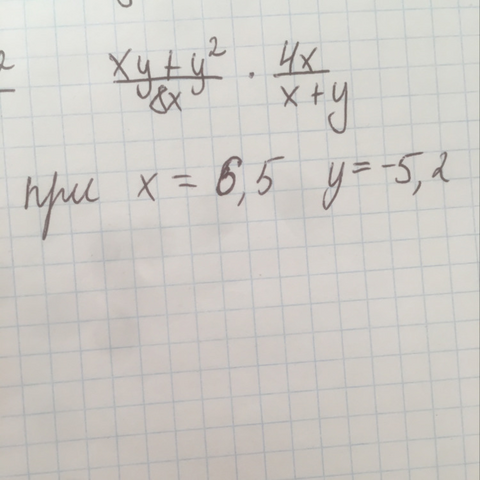 2 (xy + y²)/(8x) · (4x)/(x + y)
при x = 6,5 y = -5,2